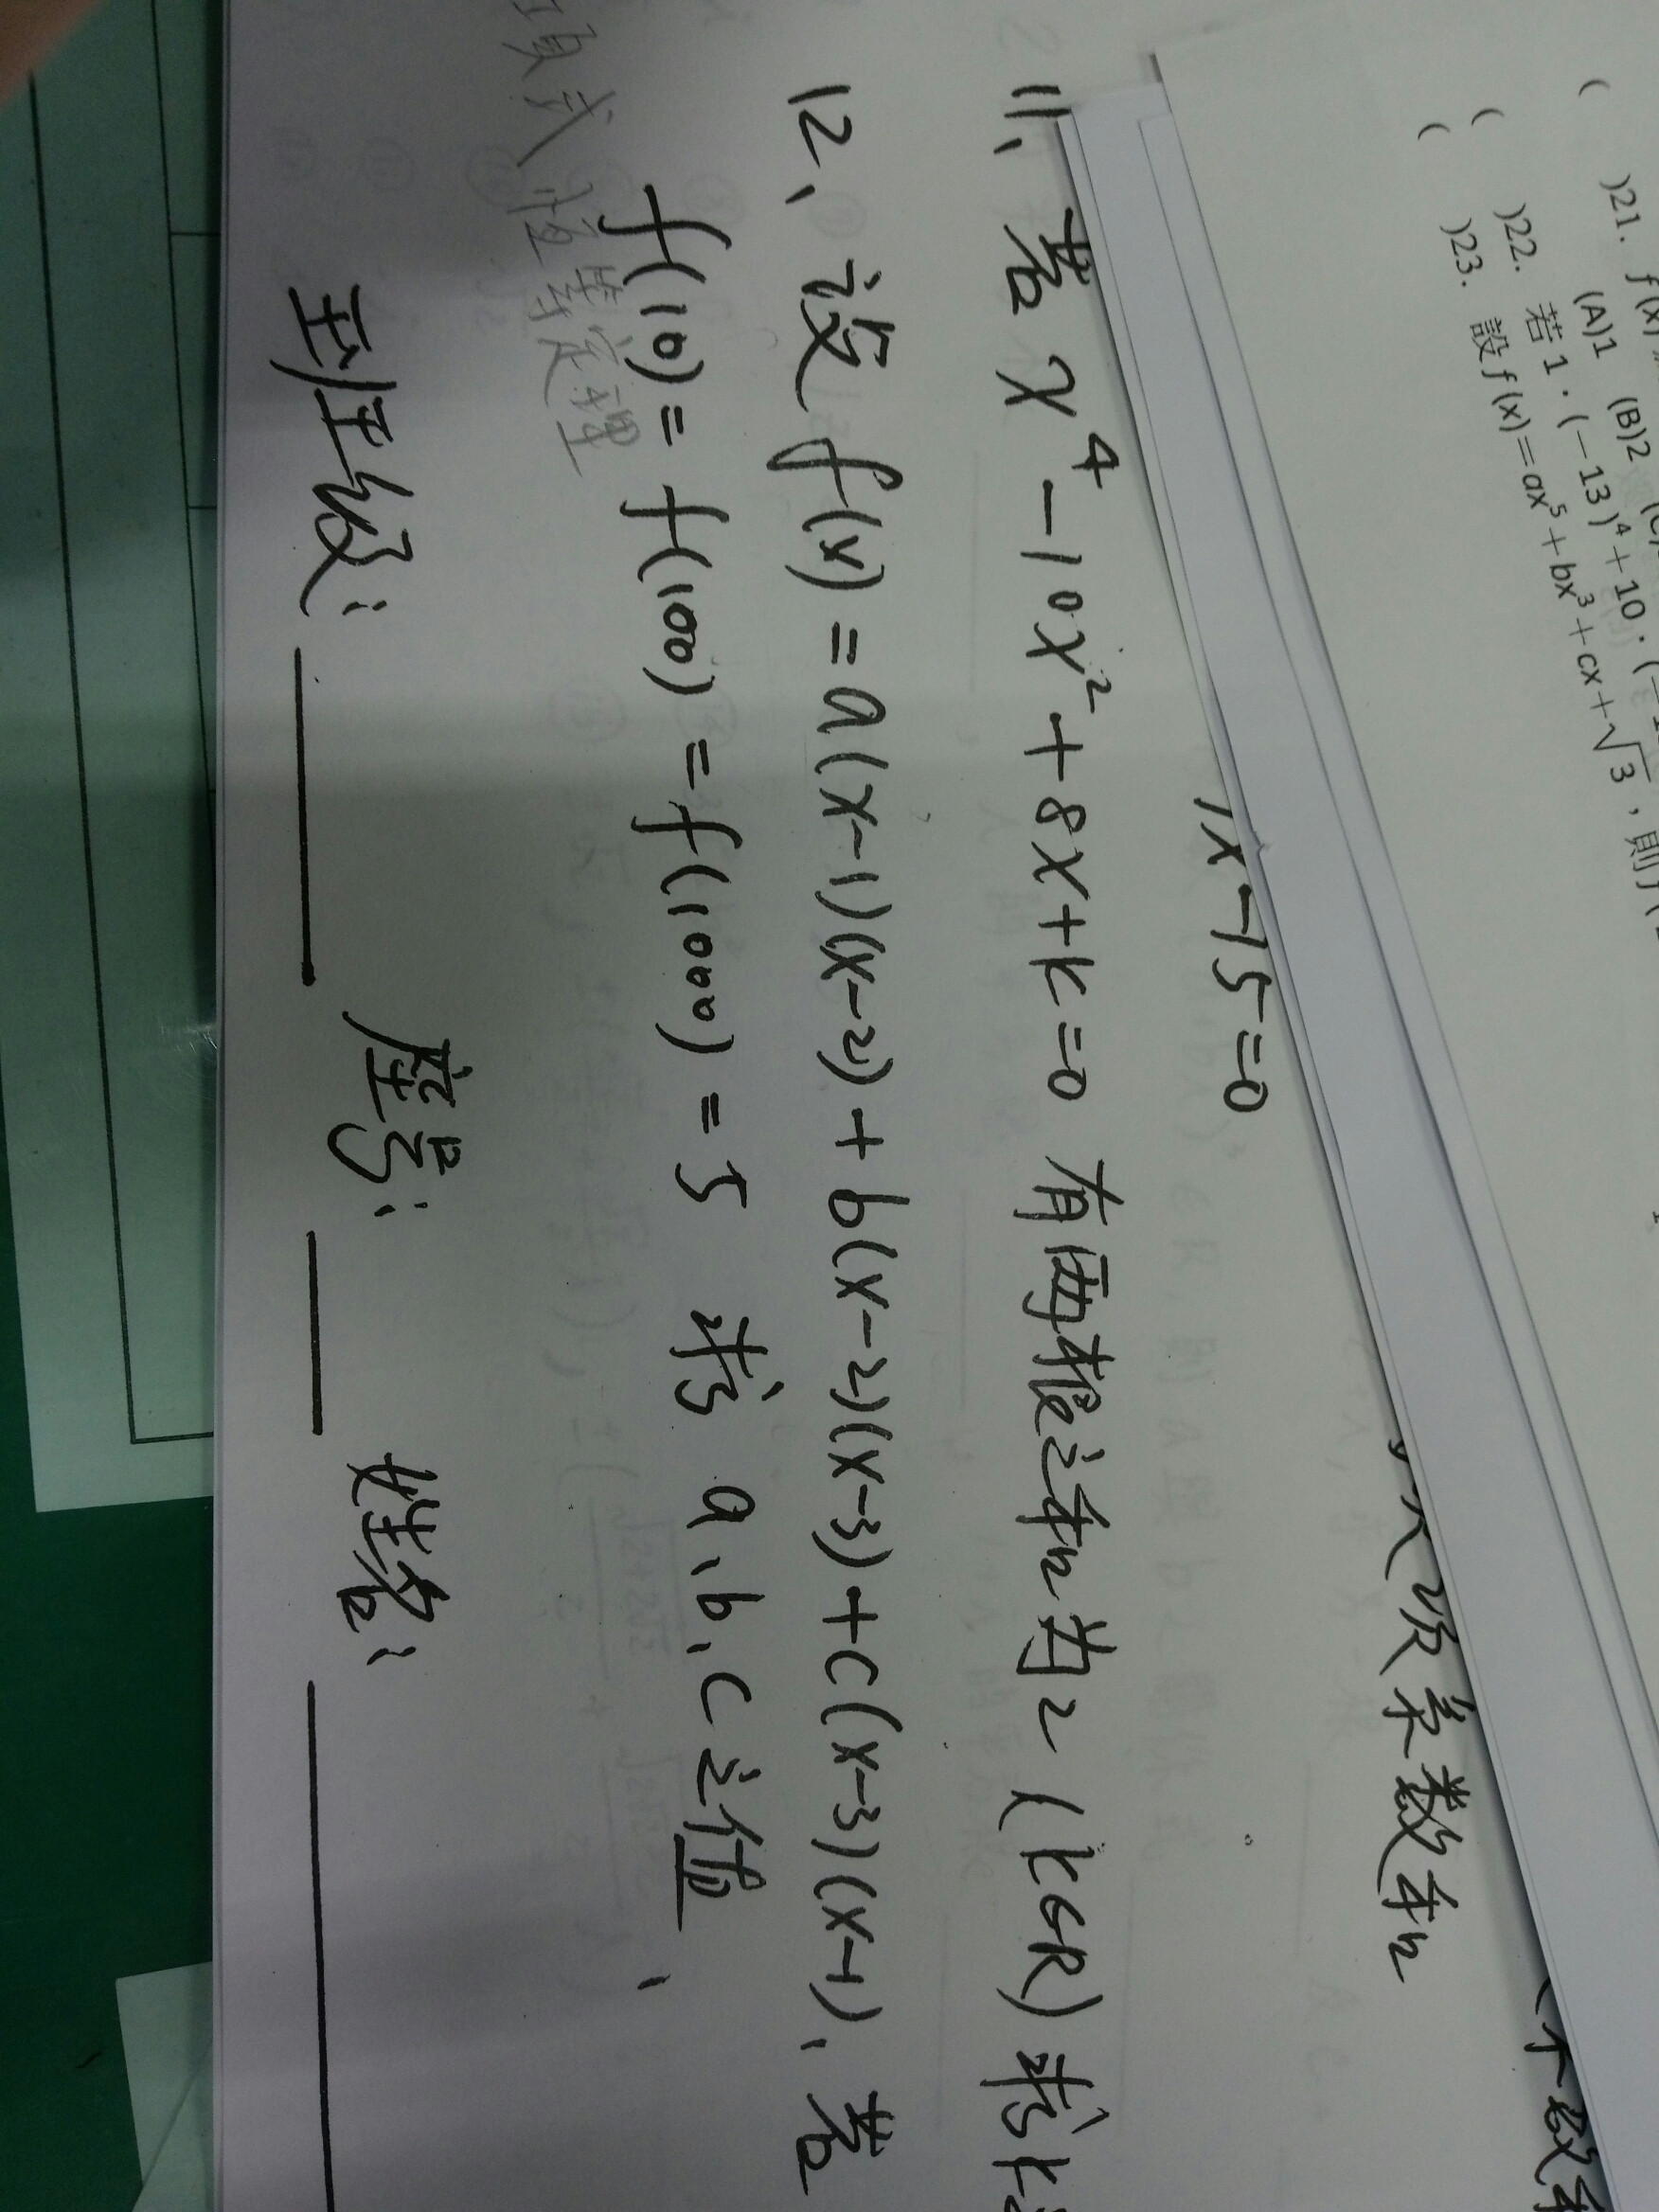 )21. f(x)
(A)1 (B)2
)22. 若1．(−13)⁴＋10．(
)23. 設f(x)＝ax⁵＋bx³＋cx＋√3，則f(
次系数和
x-75=0
11、若 x⁴-10x²+8x+k=0 有兩根之和为2 (k∈R) 求k
12、设 f(x)=a(x-1)(x-2)+b(x-2)(x-3)+c(x-3)(x-1)、若
f(10)=f(100)=f(1000)=5 求 a、b、c 之值
項式恒等定理
班级: 座号: 姓名: